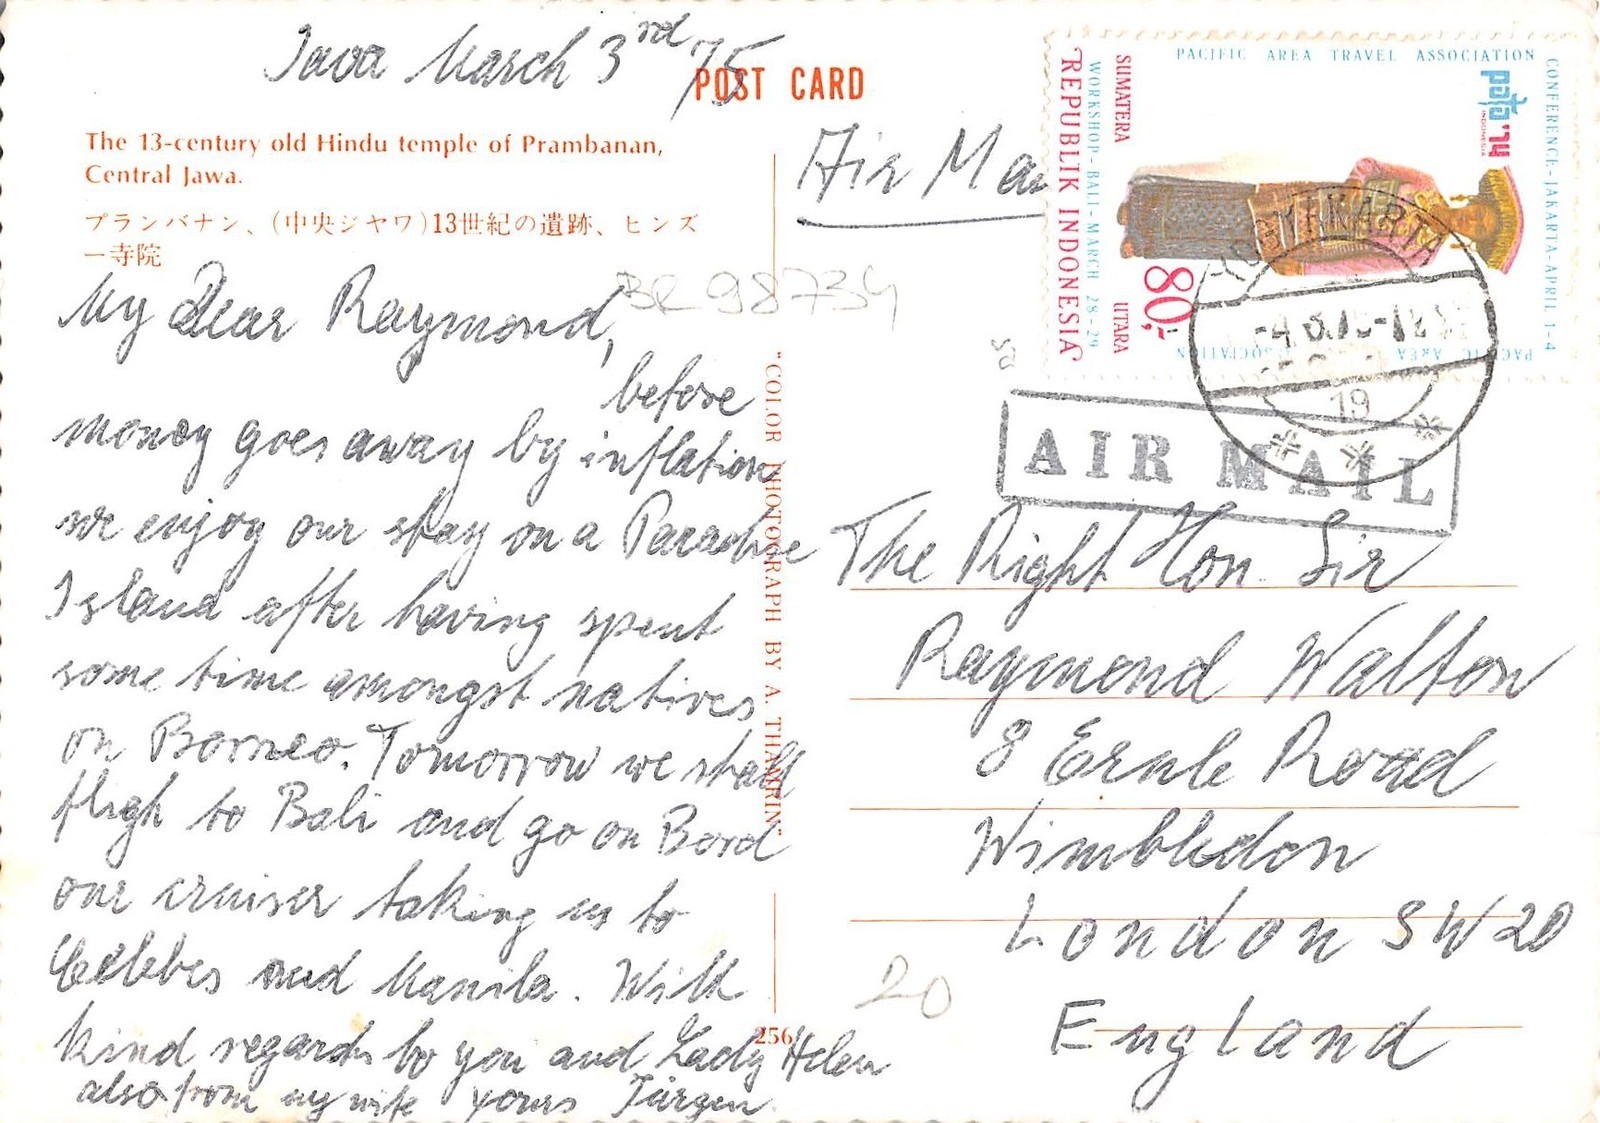 Java March 3rd /75
POST CARD
The 13-century old Hindu temple of Prambanan,
Central Jawa.
プランバナン、(中央ジヤワ)13世紀の遺跡、ヒンズ
ー寺院
My Dear Raymond,
before
money goes away by inflation
we enjoy our stay on a Paradise
Island after having spent
some time amongst natives
on Borneo. Tomorrow we shall
fligh to Bali and go on Bord
our cruiser taking us to
Celebes and Manila. With
kind regards to you and Lady Helen
also from my wife yours Jürgen.
"COLOR PHOTOGRAPH BY A. THAMRIN"
256
BR 98734
Air Mai
PACIFIC AREA TRAVEL ASSOCIATION
CONFERENCE-JAKARTA-APRIL 1-4
WORKSHOP-BALI-MARCH 28-29
pata '74
INDONESIA
SUMATERA UTARA
REPUBLIK INDONESIA
80,-
PACIFIC AREA ASSOCIATION
YOGYAKARTA
19
AIR MAIL
The Right Hon. Sir
Raymond Walton
8 Ernle Road
Wimbledon
London SW20
England
20